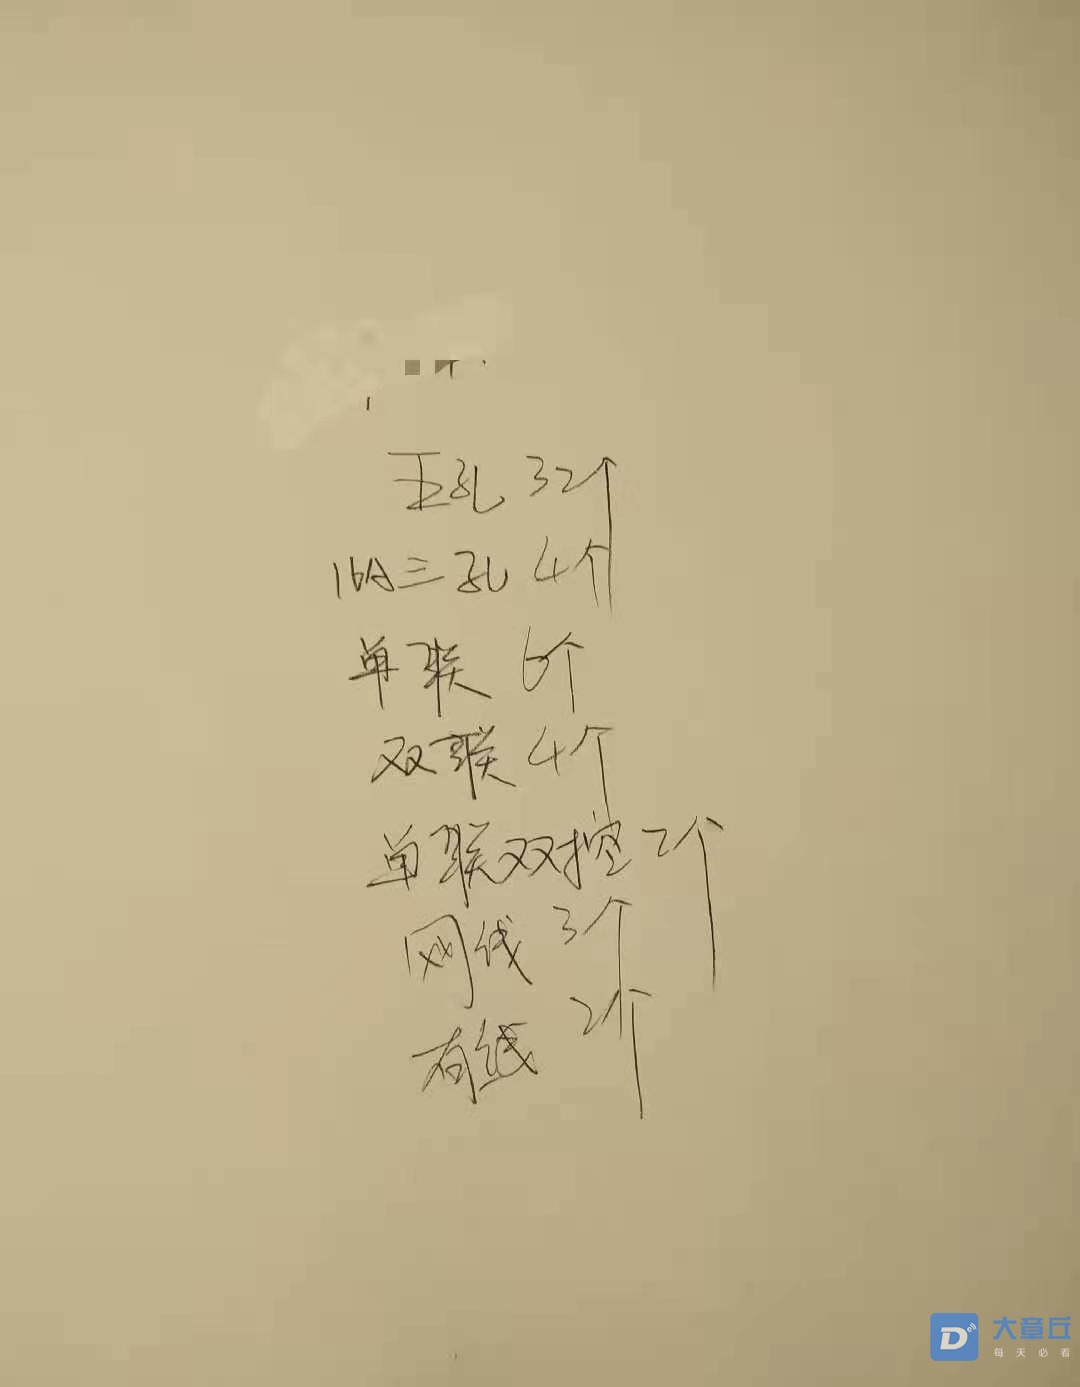 五孔 32个
16A三孔 4个
单联 6个
双联 4个
单联双控 2个
网线 3个
有线 2个
D
大章丘
每天必看